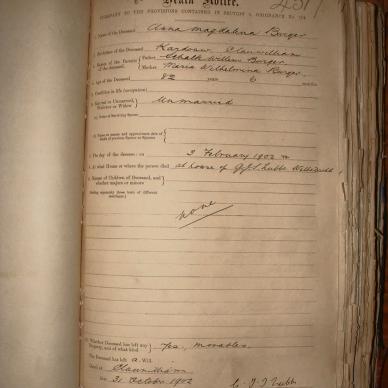 Death Notice.
PURSUANT TO THE PROVISIONS CONTAINED IN SECTION 9, ORDINANCE No. 104
Name of the Deceased Anna Magdalena Burger
Birthplace of the Deceased Clanwilliam
Names of the Parents of the deceased. Father Schalk Willem Burger
Mother Maria Wilhelmina Burger.
Age of the Deceased 82 years 6 months
Condition in life (occupation)
Married or Unmarried, Widower or Widow Unmarried
(a) Name of Surviving Spouse
(b) Name or names and approximate date of death of previous Spouse or Spouses
The day of the decease: on 3 February 1902
At what House or where the person died at house of
Names of Children of Deceased, and whether majors or minors
none
Whether Deceased has left any Property, and of what kind Yes, movables.
The Deceased has left a Will.
Dated at Clanwilliam
the 31 October 1902